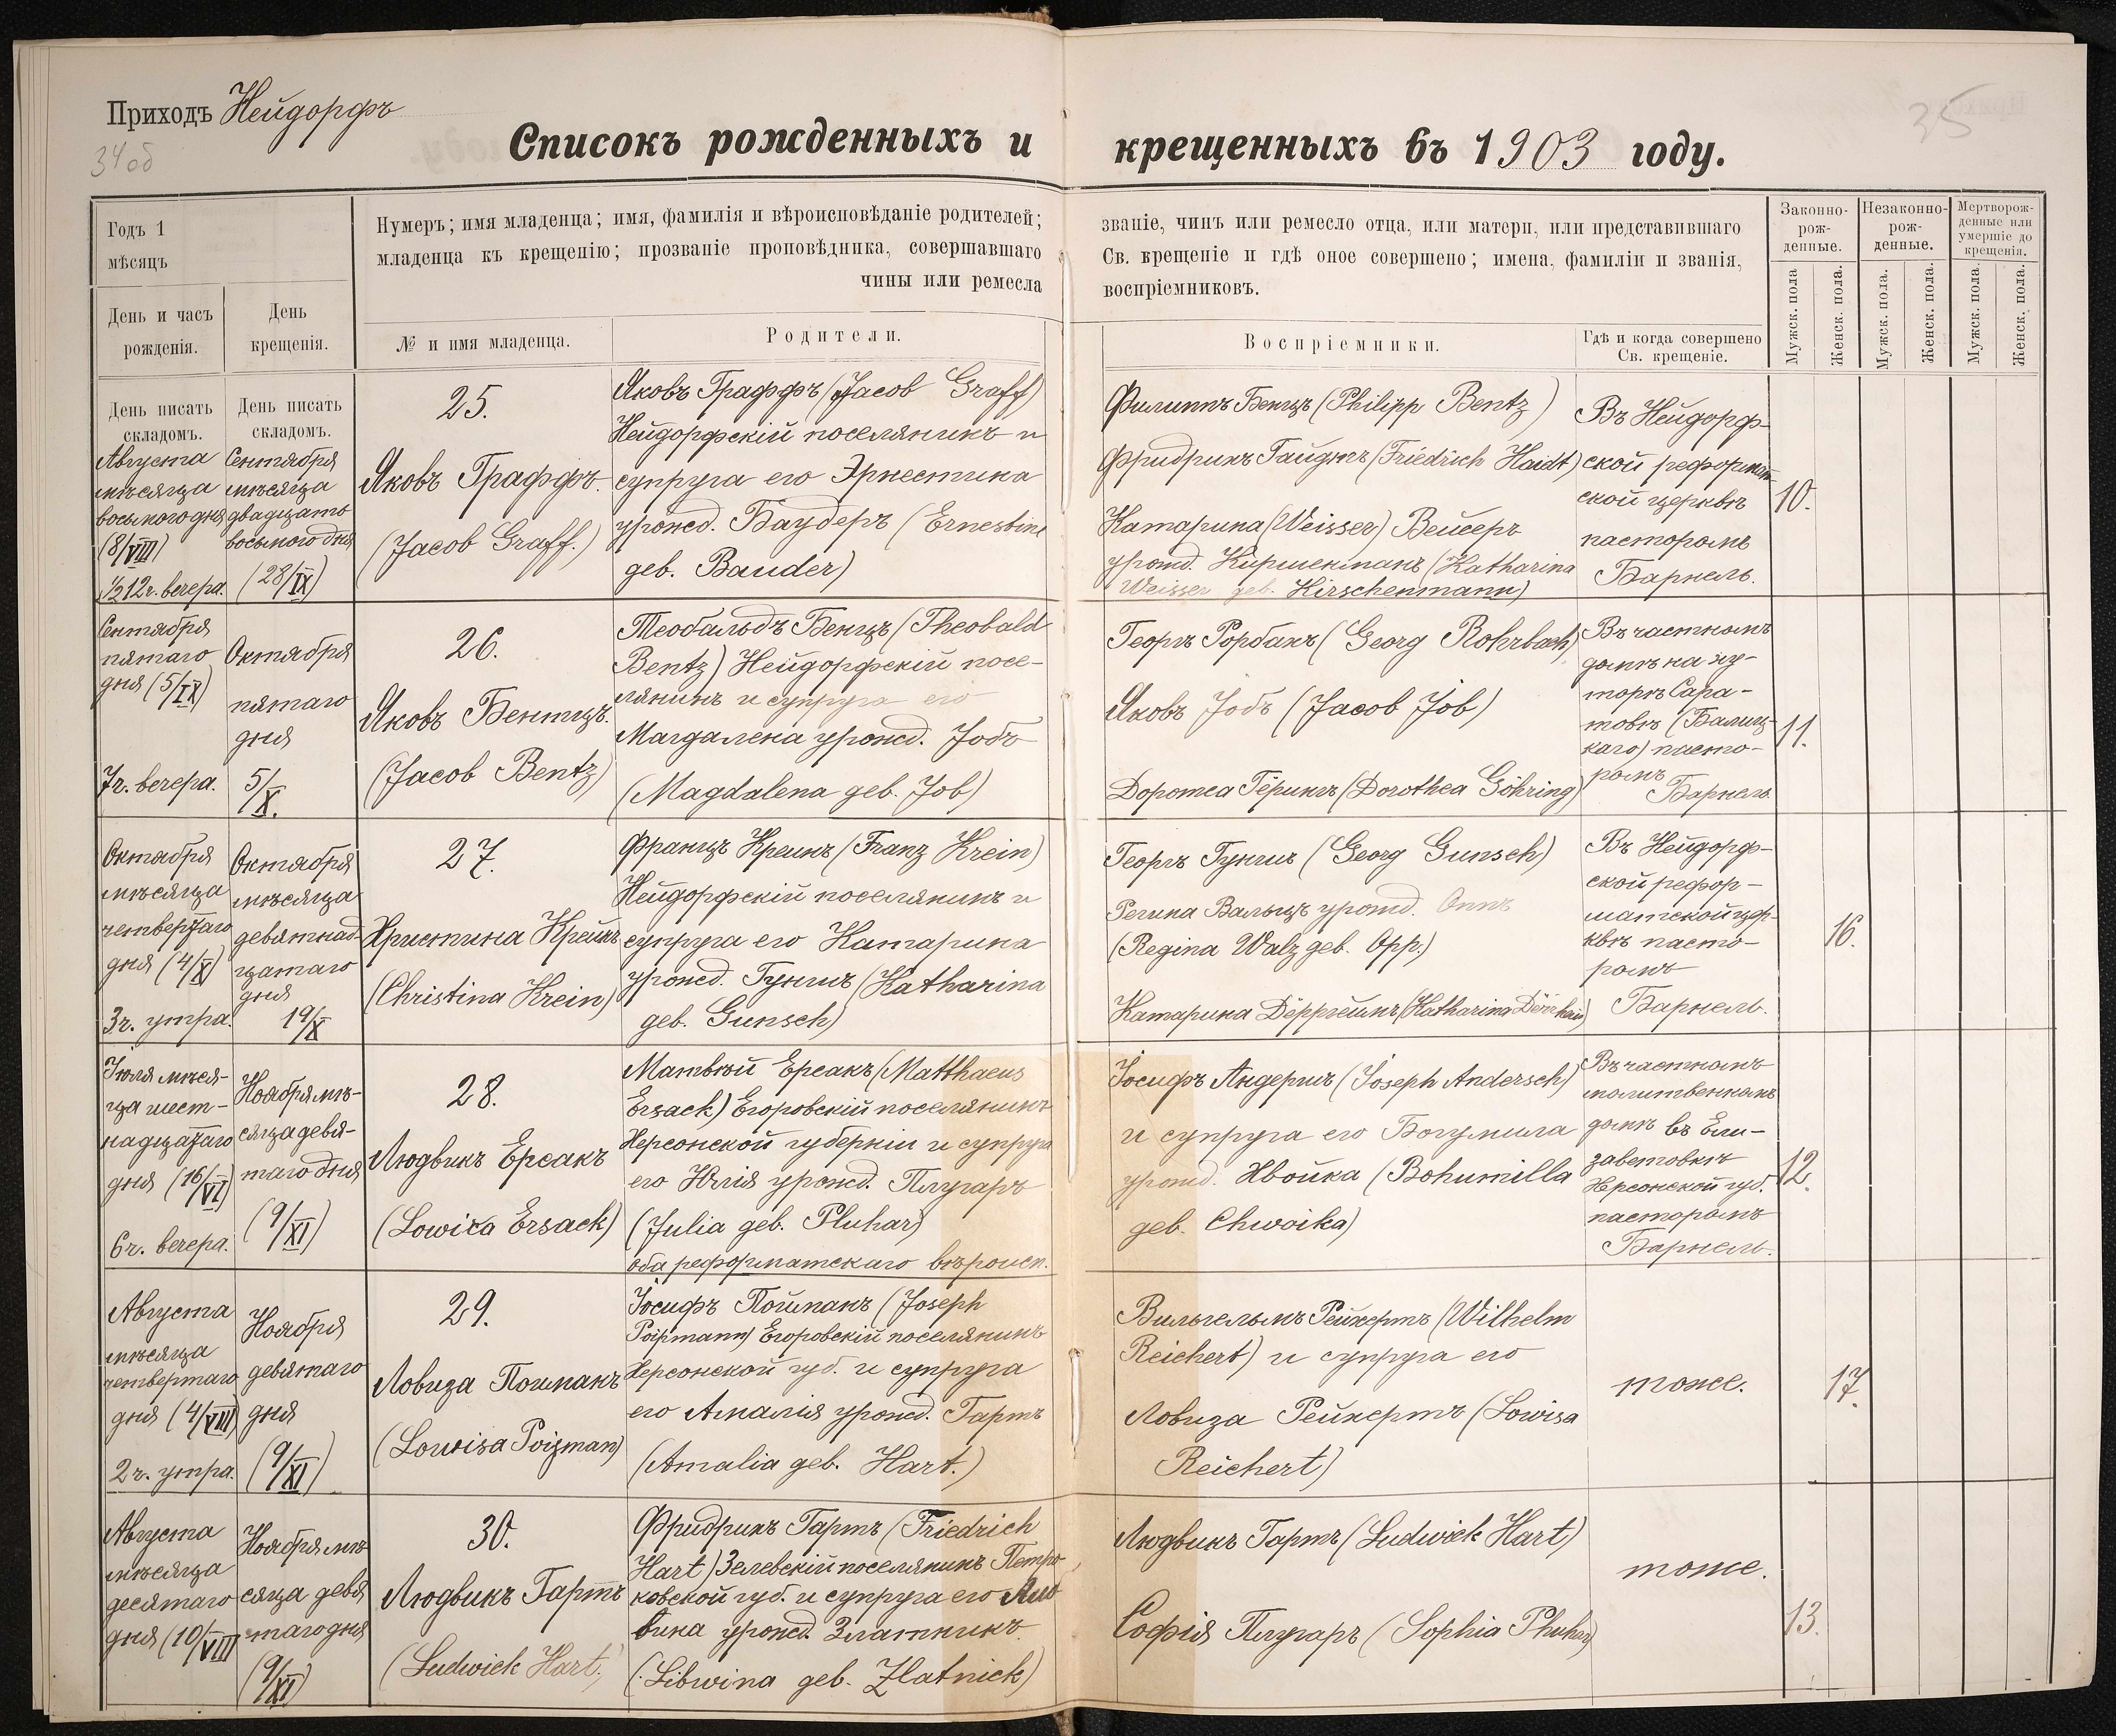 Приходъ Нейдорфъ
34 об
35
Списокъ рожденныхъ и крещенныхъ въ 1903 году.
Годъ 1
мѣсяцъ
Нумеръ; имя младенца; имя, фамилія и вѣроисповѣданіе родителей; званіе, чинъ или ремесло отца, или матери, или представившаго
младенца къ крещенію; прозваніе проповѣдника, совершавшаго Св. крещеніе и гдѣ оное совершено; имена, фамиліи и званія,
чины или ремесла воспріемниковъ.
День и часъ
рожденія.
День
крещенія.
№ и имя младенца.
Родители.
Воспріемники.
Гдѣ и когда совершено
Св. крещеніе.
Законно-
рож-
денные.
Незаконно-
рож-
денные.
Мертворож-
денные или
умершіе до
крещенія.
Мужск. пола
Женск. пола.
Мужск. пола.
Женск. пола.
Мужск. пола.
Женск. пола.
День писать
складомъ.
День писать
складомъ.
Августа
мѣсяца
восьмого дня
(8/VIII)
½12 ч. вечера.
Сентября
мѣсяца
двадцать
восьмого дня
(28/IX)
25.
Яковъ Граффъ.
(Jacob Graff.)
Яковъ Граффъ (Jacob Graff)
Нейдорфскій поселянинъ и
супруга его Эрнестина
урожд. Баудеръ (Ernestine
geb. Bauder)
Филиппъ Бенцъ (Philipp Bentz)
Фридрихъ Гайдтъ (Friedrich Haidt)
Катарина (Weisser) Вейсеръ
урожд. Киршенманъ (Katharina
Weisser geb. Kirschenmann)
Въ Нейдорф-
ской реформат-
ской церквѣ
пасторомъ
Барнель.
10.
Сентября
пятаго
дня (5/IX)
7 ч. вечера.
Октября
пятаго
дня
5/X.
26.
Яковъ Бентцъ.
(Jacob Bentz)
Теобальдъ Бенцъ (Theobald
Bentz) Нейдорфскій посе-
лянинъ и супруга его
Магдалена урожд. Іобъ
(Magdalena geb. Job)
Георгъ Рорбахъ (Georg Rohrbach)
Яковъ Іобъ (Jacob Job)
Доротеа Гёрингъ (Dorothea Göhring)
Въ частномъ
домѣ на ху-
торѣ Сара-
товѣ (Балиц-
каго) пасто-
ромъ
Барнель
11.
Октября
мѣсяца
четвертаго
дня (4/X)
3 ч. утра.
Октября
мѣсяца
девятнад-
цатаго
дня
19/X
27.
Христина Крейнъ
(Christina Krein)
Францъ Креинъ (Franz Krein)
Нейдорфскій поселянинъ и
супруга его Катарина
урожд. Гуншъ (Katharina
geb. Gunsch)
Георгъ Гуншъ (Georg Gunsch)
Регина Вальцъ урожд. Оппъ
(Regina Walz geb. Opp.)
Катарина Дёрргеймъ (Katharina
Въ Нейдорф-
ской рефор-
матской цер-
квѣ пасто-
ромъ
Барнель.
16.
Іюля мѣся-
ца шест-
надцатаго
дня (16/VI)
6 ч. вечера.
Ноября мѣ-
сяца девя-
таго дня
(9/XI)
28.
Людвикъ Ерсакъ
(Lowica Ersack)
Матвѣй Ерсакъ (Matthaeus
Ersack) Егоровскій поселянинъ
Херсонской губерніи и супруга
его Юлія урожд. Плугаръ
(Julia geb. Pluhar)
оба реформатскаго вѣроисп.
Іосифъ Андершъ (Joseph Andersch)
и супруга его Богумила
урожд. Хвойка (Bohumilla
geb. Chwoika)
Въ частномъ
молитвенномъ
домѣ въ Ели-
заветовкѣ
Херсонской губ.
пасторомъ
Барнель.
12.
Августа
мѣсяца
четвертаго
дня (4/VIII)
2 ч. утра.
Ноября
девятаго
дня
(9/XI)
29.
Ловиза Пойманъ
(Lowisa Poizman)
Іосифъ Пойманъ (Joseph
Егоровскій поселянинъ
Херсонской губ. и супруга
его Амалія урожд. Гартъ
(Amalia geb. Hart.)
Вильгельмъ Рейхертъ (Wilhelm
Reichert) и супруга его
Ловиза Рейхертъ (Lowisa
Reichert)
тоже.
17.
Августа
мѣсяца
десятаго
дня (10/VIII
Ноября мѣ-
сяца девя
таго дня
(9/XI)
30.
Людвикъ Гартъ
(Ludwick Hart.)
Фридрихъ Гартъ (Friedrich
Hart) Зелевскій поселянинъ Петро-
ковской губ. и супруга его Либ
вина урожд. Златникъ
(Libwina geb. Zlatnick)
Людвикъ Гартъ (Ludwick Hart)
Софія Плугаръ (Sophia Pluhar)
тоже.
13.